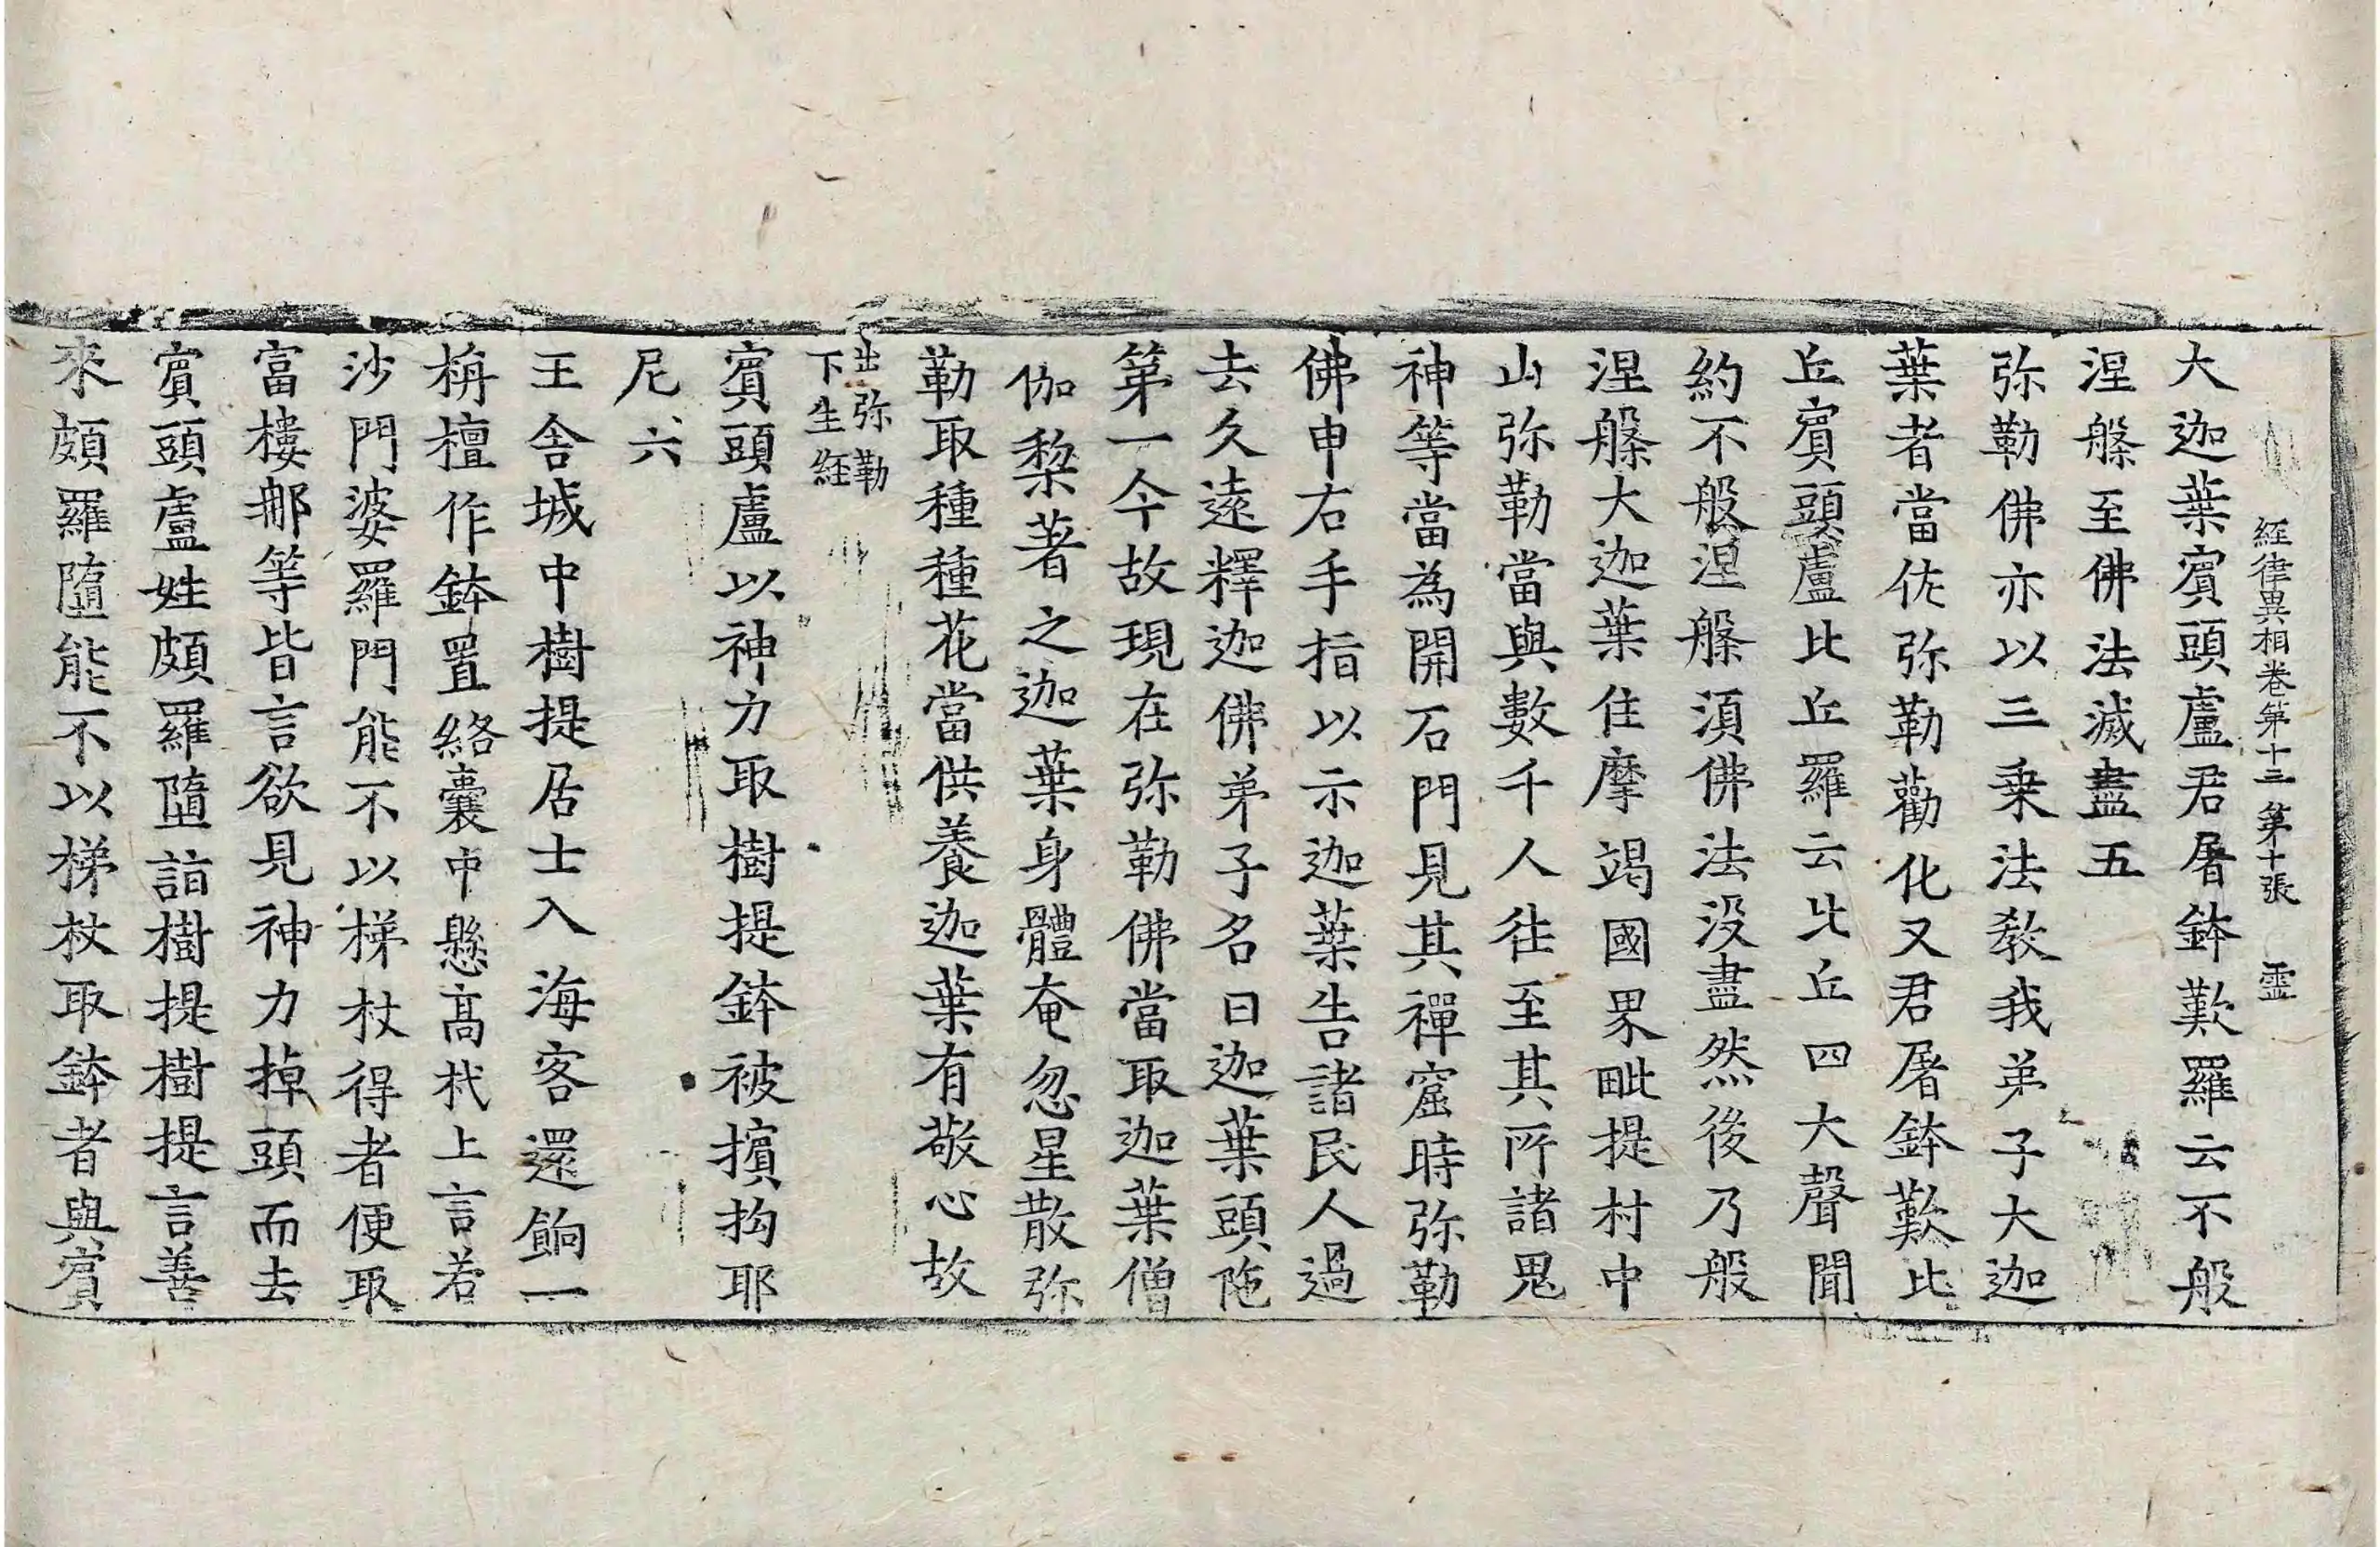 經律異相卷第十三 第十張 靈
大迦葉賓頭盧君屠鉢歎羅云不般
涅槃至佛法滅盡五
弥勒佛亦以三乗法教我弟子大迦
葉者當佐弥勒勸化又君屠鉢歎比
丘賓頭盧比丘羅云比丘四大聲聞
約不般涅槃湏佛法没盡然後乃般
涅槃大迦葉住摩竭國界毗提村中
山弥勒當與數千人往至其所諸鬼
神等當為開石門見其禪窟時弥勒
佛申右手指以示迦葉告諸民人過
去久遠釋迦佛弟子名曰迦葉頭陁
第一今故現在弥勒佛當取迦葉僧
伽梨著之迦葉身體奄忽星散弥
勒取種種花當供養迦葉有敬心故
出弥勒
下生經
賓頭盧以神力取樹提鉢被擯拘耶
尼六
王舍城中樹提居士入海客還餉一
栴檀作鉢置絡囊中懸髙杙上言若
沙門婆羅門能不以梯杖得者便取
富樓𨚗等皆言欲見神力掉頭而去
賓頭盧姓頗羅墮詣樹提樹提言善
來頗羅墮能不以梯杖取鉢者與賓